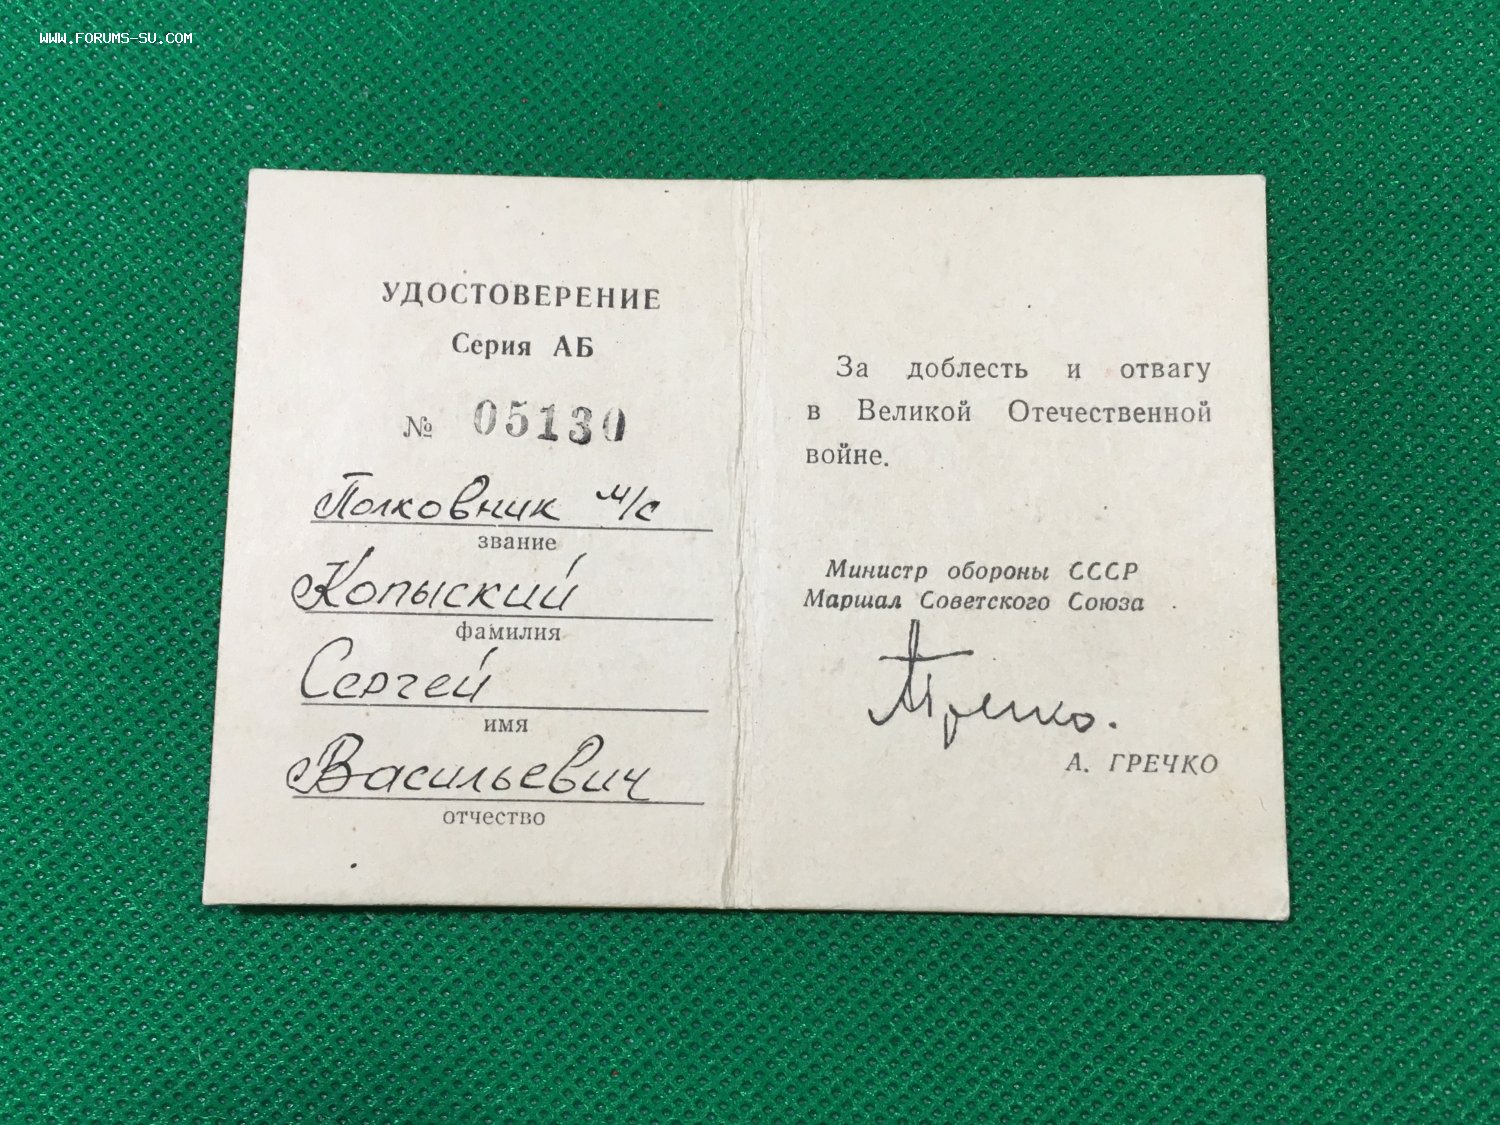 WWW.FORUMS-SU.COM
УДОСТОВЕРЕНИЕ
Серия АБ
№ 05130
Полковник м/с
звание
Копыский
фамилия
Сергей
имя
Васильевич
отчество
За доблесть и отвагу
в Великой Отечественной
войне.
Министр обороны СССР
Маршал Советского Союза
АГречко.
А. ГРЕЧКО